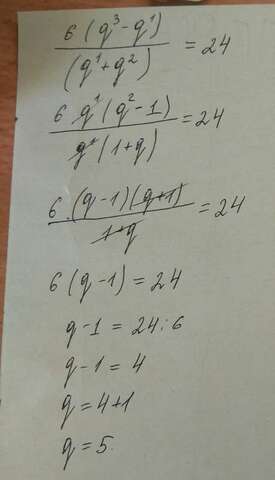 6(q³-q¹)/(q¹+q²) = 24
6 q¹(q²-1)/q¹(1+q) = 24
6·(q-1)(q+1)/1+q = 24
6(q-1) = 24
q-1 = 24:6
q-1 = 4
q = 4+1
q = 5.